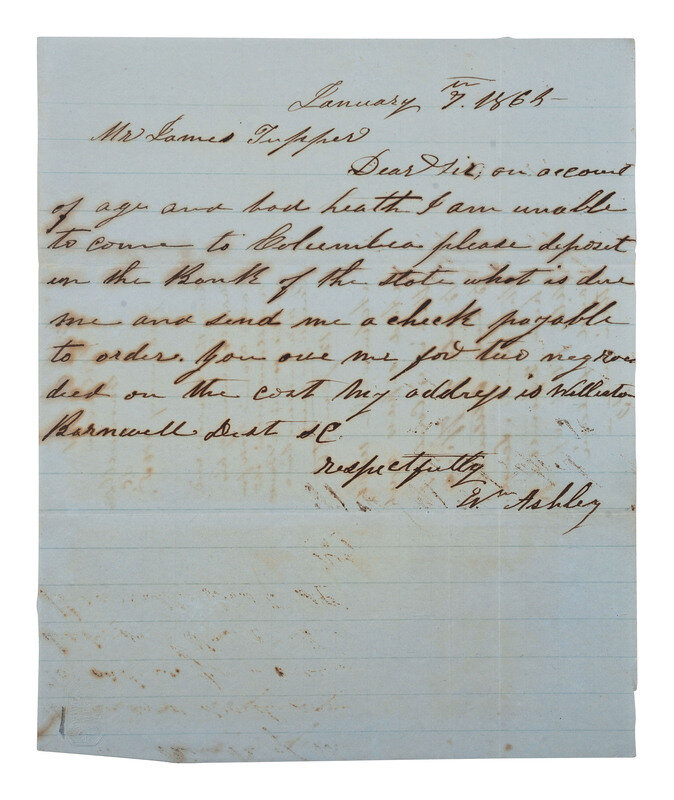 January 7.th 1865-
Mr James Tupper
Dear Sir, on account
of age and bad heath I am unable
to come to Columbia please deposit
in the Bank of the state what is due
me and send me a check payable
to order. You owe me for two negroes
died on the cost My address is Williston
Barnwell Dest SC
respectfully
Wm Ashley